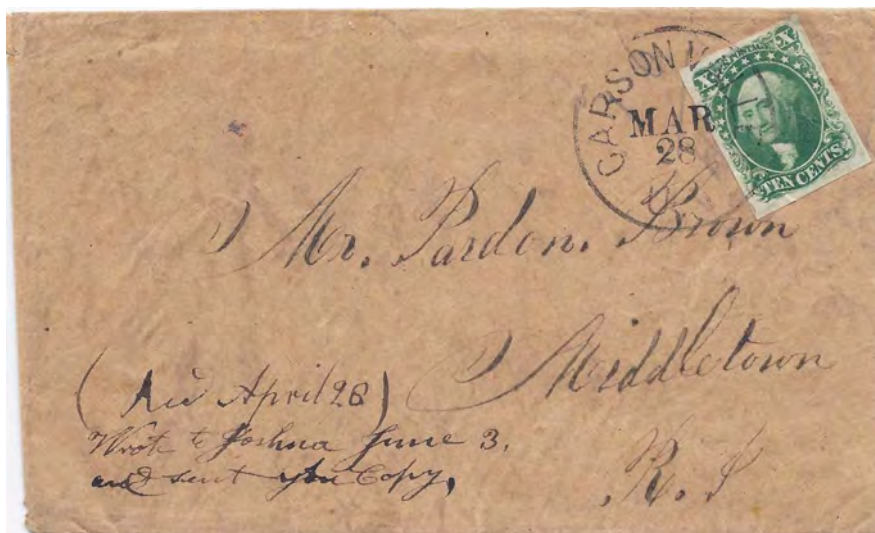 CARSON V
MAR
28
X POSTAGE X
TEN CENTS
Mr. Pardon. Brown
Middletown
R. I
(Recd April 28)
Wrote to Joshua June 3.
and sent Copy,